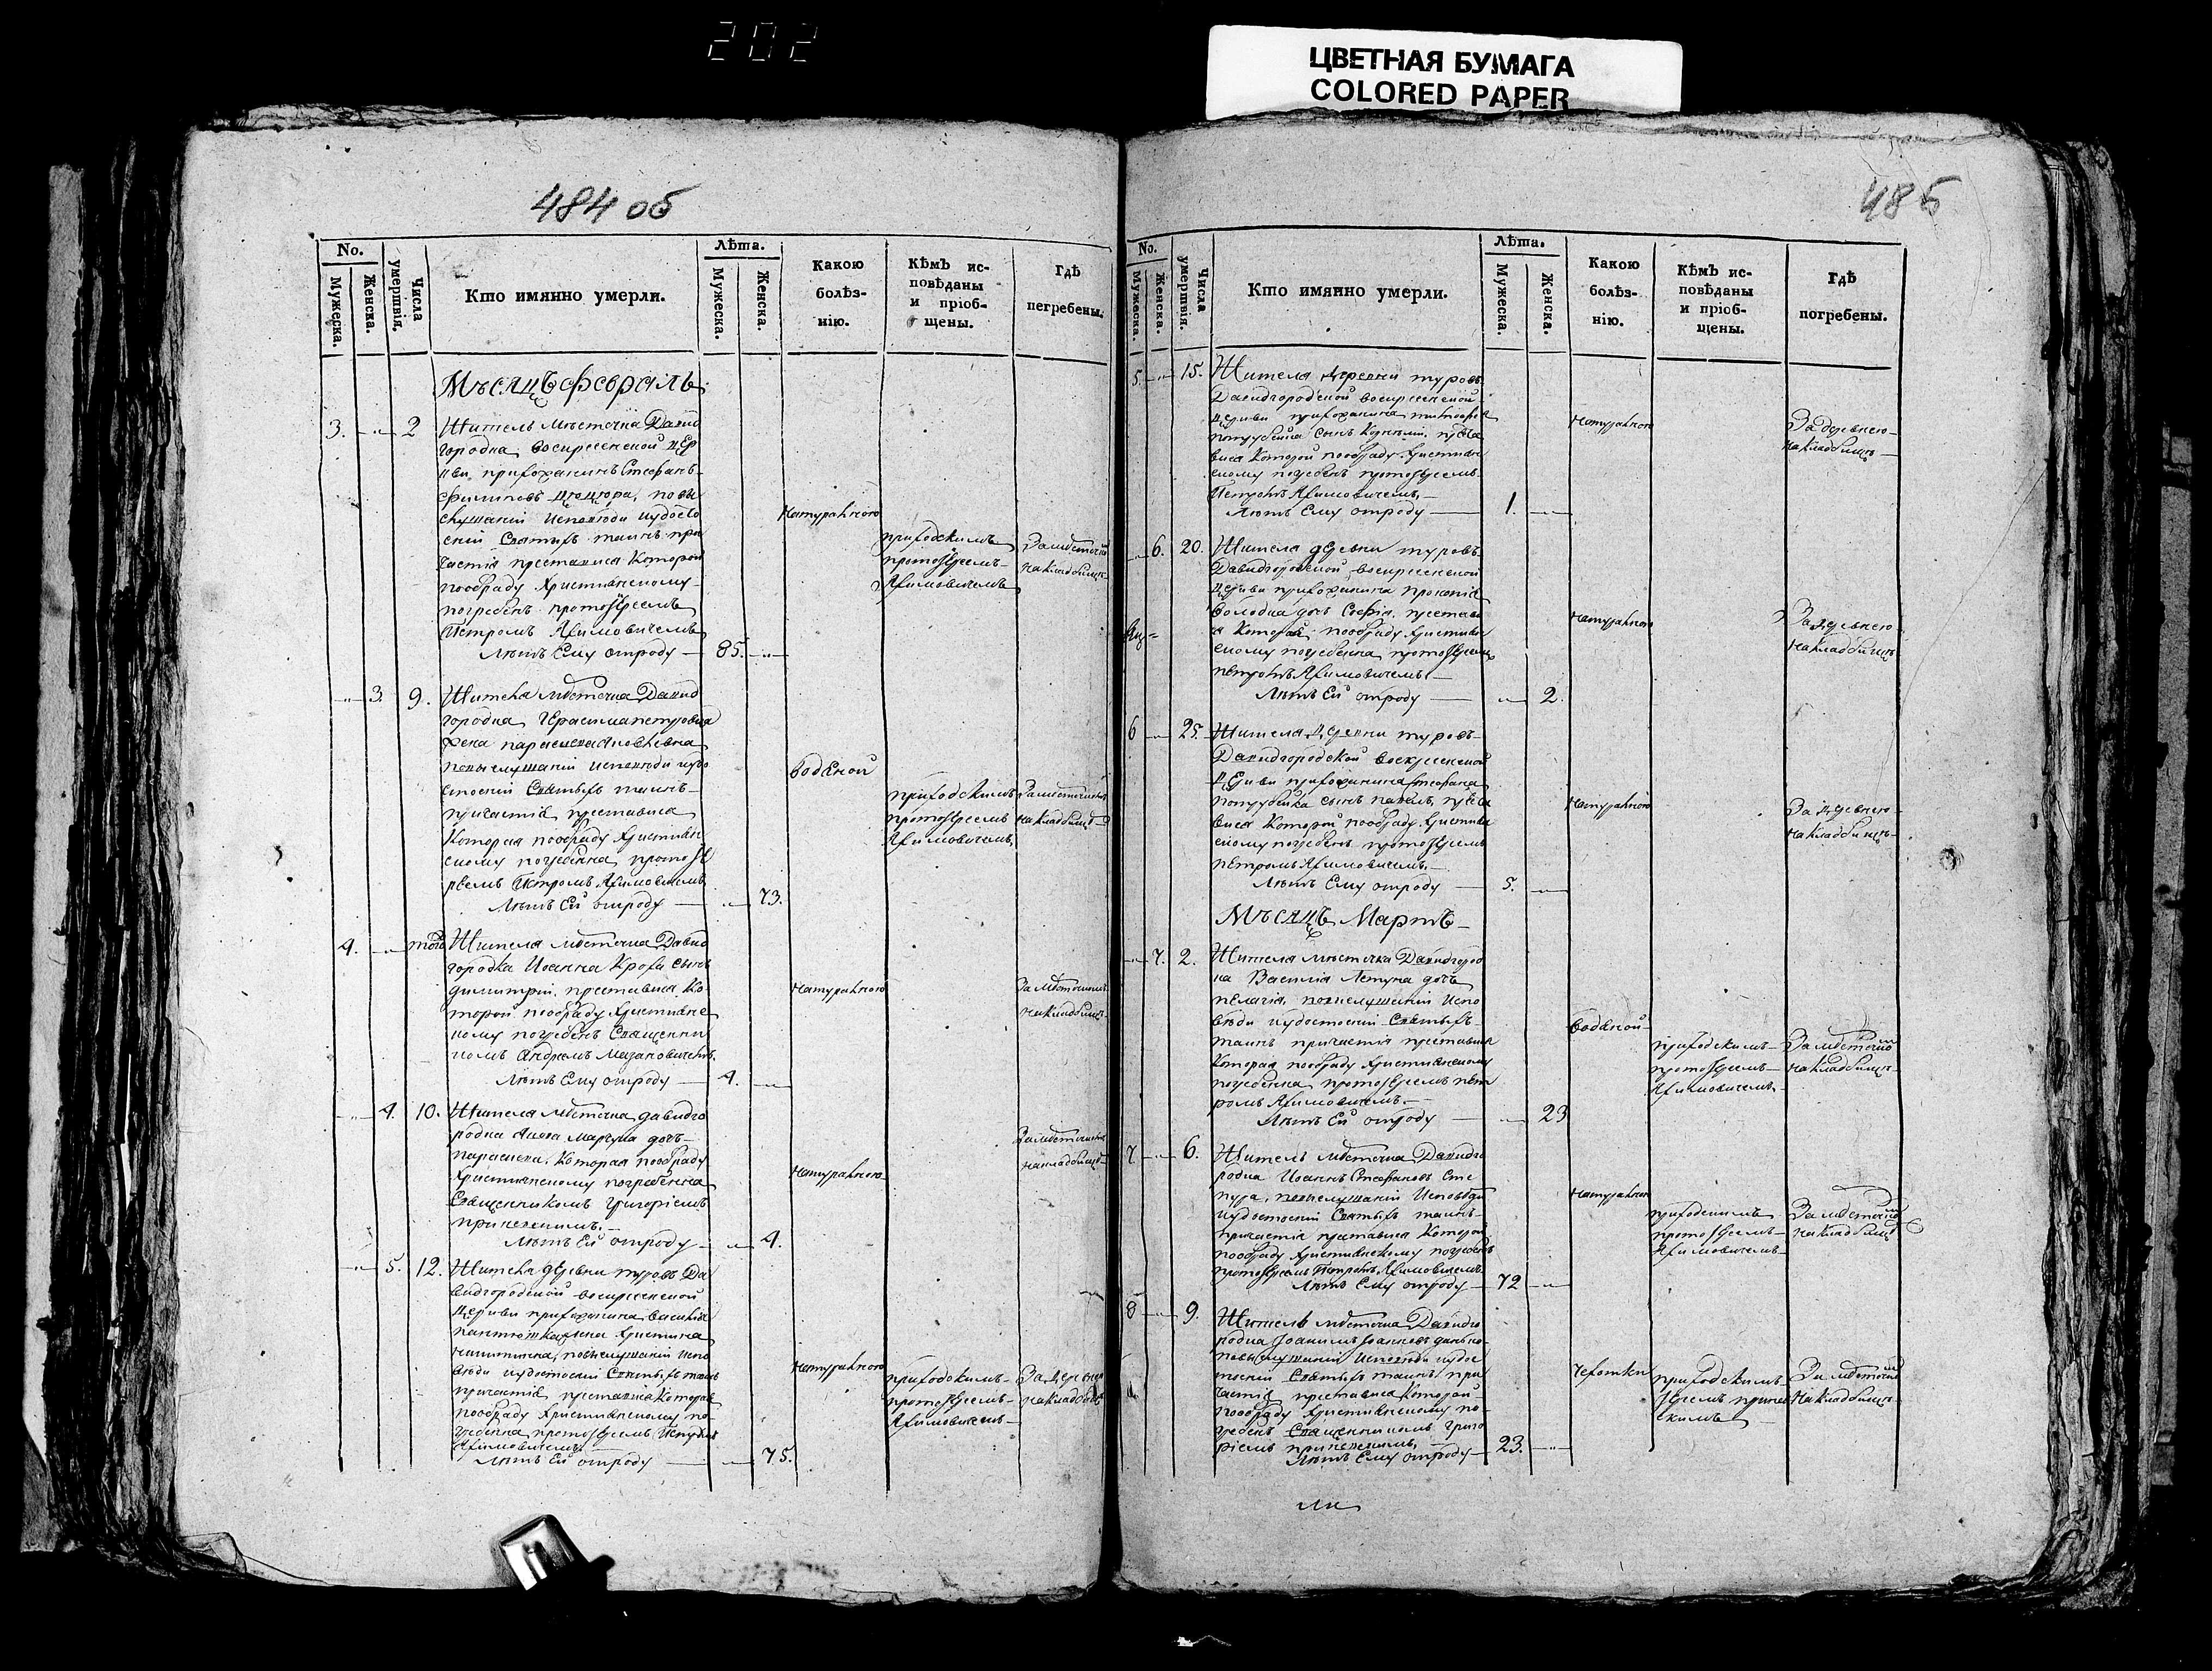 202
ЦВЕТНАЯ БУМАГА
COLORED PAPER
484 об
No.
Мужеска.
Женска.
Числа умертвія.
Кто имянно умерли.
Лѣта.
Мужеска.
Женска.
Какою
болѣз-
нію.
Кѣмъ ис-
повѣданы
и пріоб-
щены.
Гдѣ
пегребены.
Мѣсяцъ февраль
3. 2 Житель мѣстечка Давид
городка, воскресенской цер
кви прихожанинъ Стефанъ
по вы
слушаніи исповѣди и удосто
еніи Святыхъ таинъ при
частія преставися которой
по обряду христианскому
погребенъ протоіереемъ
Петромъ Якимовичемъ
Лѣтъ Ему отроду 85.
Натуральною
приходскимъ
протоіереемъ
Якимовичемъ
За мѣстечком
на кладбищѣ
3. 9. Жителя мѣстечка Давид
городка Герасима
жена параскева
по выслушаніи исповѣди и удо
стоеніи Святыхъ таинъ
причастія преставися
Которая по обряду христиан
скому погребенна протоіе
реемъ Петромъ Якимовичемъ
Лѣтъ Ей отроду 73.
водяной
приходскимъ
протоіереемъ
Якимовичемъ
За мѣстечкомъ
на кладбищѣ
4. того Жителя мѣстечка Давид
городка Иоанна Крота сынъ
димитрій, преставися Ко
торой по обряду христианс
кому погребенъ Священни
комъ Андреемъ
Лѣтъ Ему отроду 4.
натуральною
За мѣстечкомъ
на кладбищѣ
4. 10. Жителя мѣстечка давидго
родка дочь
параскева, Которая по обряду
Христианскому погребенна
Священникомъ Григоріемъ
Лѣтъ Ей отроду 4.
натуральною
За мѣстечкомъ
на кладбищѣ
5. 12. Жителя деревни туровъ Да
видгородской воскресенской
Церкви прихожанина василія
жена христина
по выслушаніи испо
вѣди и удостоеніи Святыхъ таинъ
причастія преставися Которая
по обряду христианскому по
гребенна протоіереемъ Петромъ
Якимовичемъ
Лѣтъ Ей отроду 75.
натуральною
приходскимъ
протоіереемъ
Якимовичемъ
За деревнею
на кладбищѣ
485
No.
Мужеска.
Женска.
Числа умертвія.
Кто имянно умерли.
Лѣта.
Мужеска.
Женска.
Какою
болѣз-
нію.
Кѣмъ ис-
повѣданы
и пріоб-
щены.
Гдѣ
погребены.
5. 15. Жителя деревни туровъ
Давидгородской воскресенской
Церкви прихожанина тимофея
сынъ Корнилій, преста
вися Которой по обряду христиан
скому погребенъ протоіереемъ
Петромъ Якимовичемъ
Лѣтъ Ему отроду 1.
натуральною
За деревнею
на кладбищѣ
6. 20. Жителя деревни туровъ
Давидгородской воскресенской
Церкви прихожанина прокопія
дочь Софія, престави
ся Которая по обряду христиан
скому погребенна протоіереемъ
петромъ Якимовичемъ
Лѣтъ Ей отроду 2.
натуральною
За деревнею
на кладбищѣ
6 25. Жителя деревни туровъ
Давидгородской воскресенской
Церкви прихожанина стефана
сынъ павелъ, преста
вися Которой по обряду христиан
скому погребенъ протоіереемъ
петромъ Якимовичемъ
Лѣтъ Ему отроду 5.
натуральною
За деревнею
на кладбищѣ
Мѣсяцъ Мартъ
7. 2. Жителя мѣстечка Давидгород
ка Василія Летуна дочь
пелагія, по выслушаніи испо
вѣди и удостоеніи Святыхъ
таинъ причастія преставися
Которая по обряду христианскому
погребенна протоіереемъ пет
ромъ Якимовичемъ
Лѣтъ Ей отроду 23
водяной
приходскимъ
протоіереемъ
Якимовичемъ
За мѣстечком
на кладбищѣ
7 6. Житель мѣстечка Давидго
родка Иоаннъ Стефановъ Сте
пура, по выслушаніи Исповѣди
и удостоеніи Святыхъ таинъ
причастія преставися Которой
по обряду христианскому погребенъ
протоіереемъ Петромъ Якимовичемъ
Лѣтъ Ему отроду 72
натуральною
приходскимъ
протоіереемъ
Якимовичемъ
За мѣстечком
на кладбищѣ
8 9. Житель мѣстечка Давидго
родка
по выслушаніи исповѣди и удос
тоеніи Святыхъ таинъ при
частія преставися Которой
по обряду христианскому по
гребенъ Священникомъ Григо
ріемъ
Лѣтъ Ему отроду 23.
чехотки
приходскимъ
За мѣстечком
на кладбищѣ